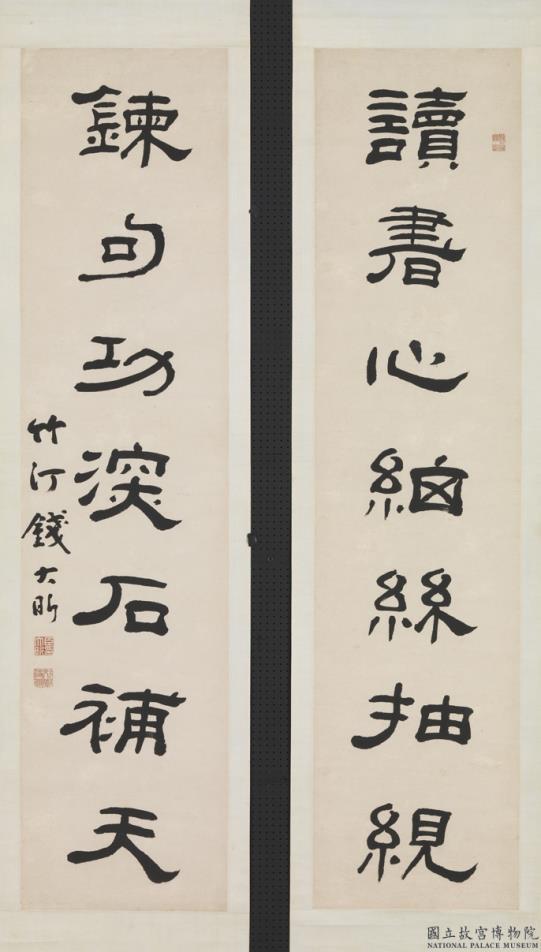 讀書心細絲抽絸
鍊句功深石補天
竹汀錢大昕
國立故宮博物院
NATIONAL PALACE MUSEUM